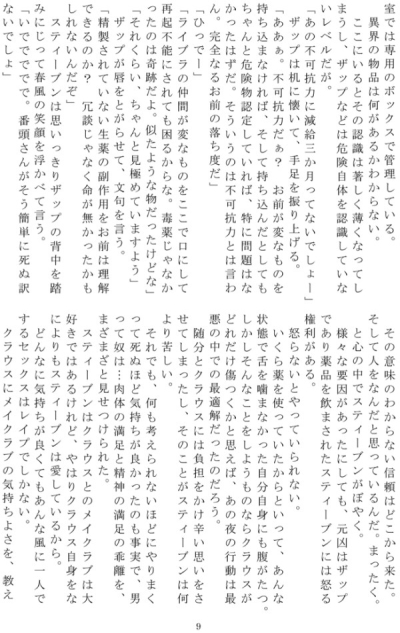 室では専用のボックスで管理している。
　異界の物品は何があるかわからない。
　ここにいるとその認識は著しく薄くなってし
まうし、ザップなどは危険自体を認識していな
いレベルだが。
「あの不可抗力に減給三か月ってないでしょー」
　ザップは机に懐いて、手足を振り上げる。
「ああぁ。不可抗力だぁ？　お前が変なものを
持ち込まなければ、そして持ち込んだとしても
ちゃんと危険物認定していれば、特に問題はな
かったはずだ。そういうのは不可抗力とは言わ
ん。完全なるお前の落ち度だ」
「ひっでー」
「ライブラの仲間が変なものをここで口にして
再起不能にされても困るからな。毒薬じゃなか
ったのは奇跡だよ。似たような物だったけどな」
「それくらい、ちゃんと見極めていますよう」
　ザップが唇をとがらせて、文句を言う。
「精製されていない生薬の副作用をお前は理解
できるのか？　冗談じゃなく命が無かったかも
しれないんだぞ」
　スティーブンは思いっきりザップの背中を踏
みにじって春風の笑顔を浮かべて言う。
「いででででで。番頭さんがそう簡単に死ぬ訳
ないでしょ」
　その意味のわからない信頼はどこから来た。
そして人をなんだと思っているんだ。まったく。
と心の中でスティーブンがぼやく。
　様々な要因があったにしても、元凶はザップ
であり薬品を飲まされたスティーブンには怒る
権利がある。
　怒らないとやっていられない。
　いくら薬を使っていたからといって、あんな
状態で舌を噛まなかった自分自身にも腹がたつ。
しかしそんなことをしようものならクラウスが
どれだけ傷つくかと思えば、あの夜の行動は最
悪の中での最適解だったのだろう。
　随分とクラウスには負担をかけ辛い思いをさ
せてしまったし、そのことがスティーブンは何
より苦しい。
　それでも、何も考えられないほどにやりまく
って死ぬほど気持ちが良かったのも事実で、男
って奴は…肉体の満足と精神の満足の乖離を、
まざまざと見せつけられた。
　スティーブンはクラウスとのメイクラブは大
好きではあるけれど、やはりクラウス自身をな
によりもスティーブンは愛しているから。
　どんなに気持ちが良くてもあんな風に一人で
するセックスはレイプでしかない。
　クラウスにメイクラブの気持ちよさを、教え
9